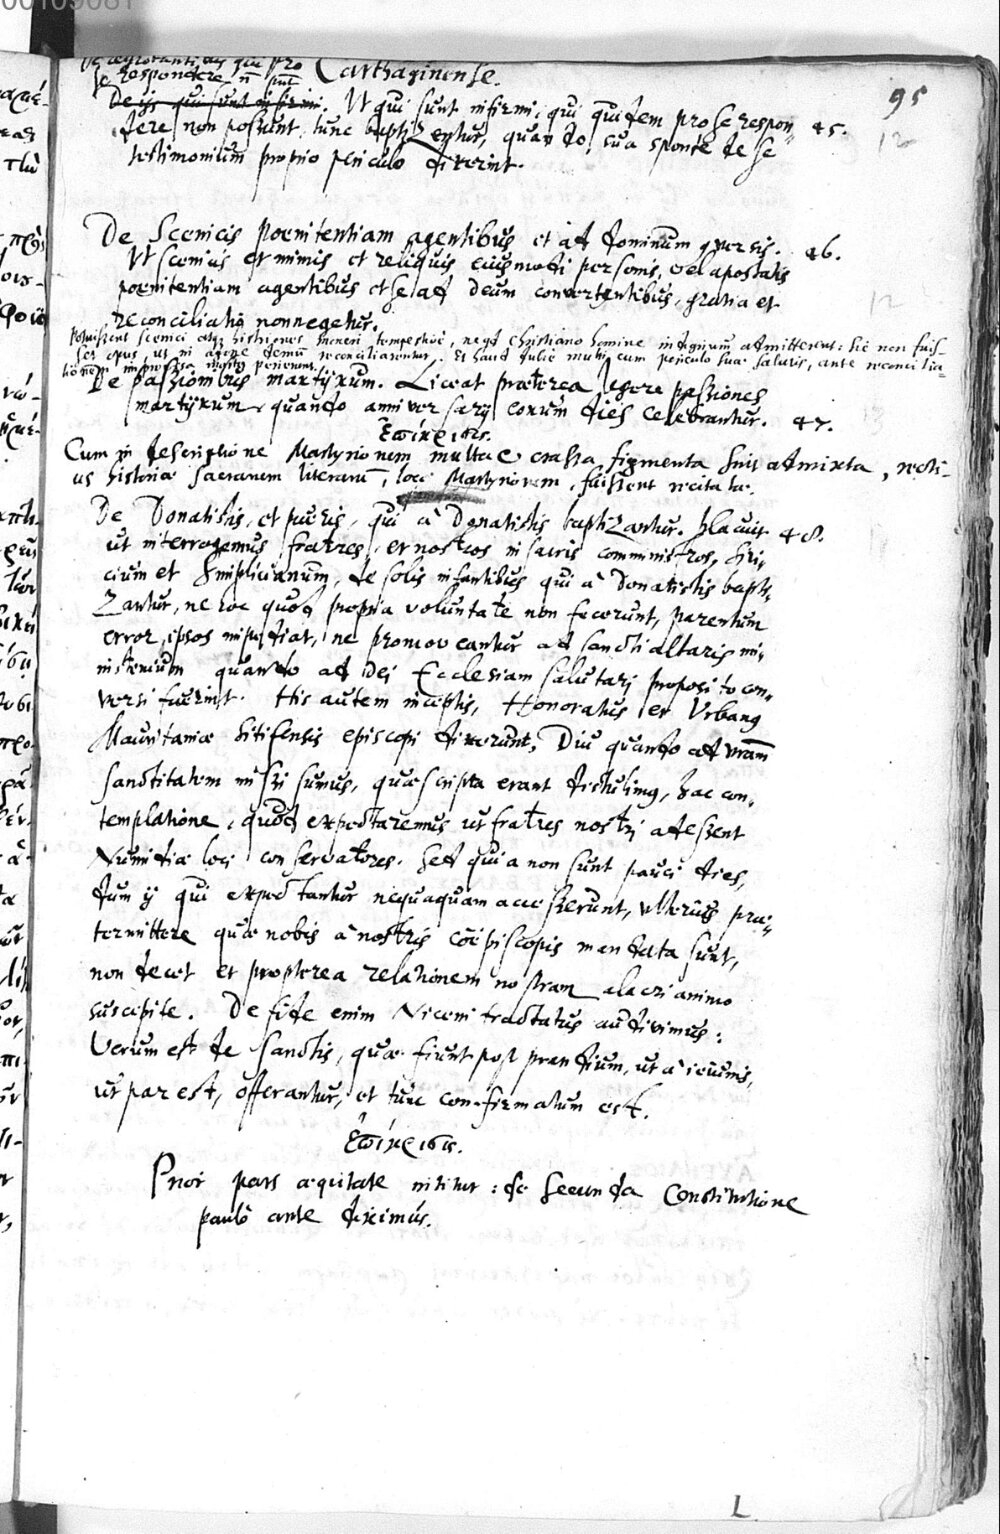 00109081
De aegrotantibus qui pro
se respondere nō pnt
Carthaginense.
95
12
De ijs qui sunt infirmi. Ut qui sunt infirmi, qui quidem pro se respon= 45.
dere non possunt, tunc baptizentur, quando sua sponte de se
testimonium proprio periculo dixerint.
De Scenicis poenitentiam agentibus et ad dominum conversis. 46.
Ut scenicis et mimis et reliquis eiusmodi personis, vel apostatis
poenitentiam agentibus et se ad Deum convertentibus, gratia et
reconciliatio non negetur.
Potuissent scenici atque histriones moneri tempestive, neque Christiano homine indignum admitterent: sic non fuis=
set opus, ut in agone demum reconciliarentur. Et haud dubie multi cum periculo suae salutis, ante reconcilia=
tionem
De passionibus martyrum. Liceat praeterea legere passiones
martyrum, quando anniversarij eorum dies celebrantur. 47.
Ἐπίκρισις.
Cum in descriptione Martyrionem multae crassa figmenta sint admixta, recti=
us historiae sacrarum literarum, loco Martyriorem, fuissent recitatae.
De Donatistis, et pueris, qui à Donatistis baptizantur. Placuit 48.
ut interrogemus fratres et nostros in sacris comministros, Siri=
cium et Simplicianum, de solis infantibus qui à Donatistis bapti=
zantur, ne hoc quod propria voluntate non fecerunt, parentum
error ipsos impediat, ne promoveantur ad sancti altaris mi=
nisterium quando ad Dei Ecclesiam salutari proposito con=
versi fuerint. His autem inceptis, Honoratus et Urbanus
Mauritaniae Sitifensis episcopi dixerunt, Diu quando ad vram
sanctitatem missi sumus, quae scripta erant distulimus, hac con=
templatione, quòd expectaremus ut fratres nostri adessent
Numidiae loci conservatores. Sed quia non sunt pauci dies,
dum ij qui expectantur nequaquam accesserunt, ulterius prae=
termittere quae nobis à nostris coëpiscopis mandata sunt,
non decet et propterea relationem nostram alacri animo
suscipite. De fide enim Niceni tractatus audivimus:
Verum est de Sanctis, quae fiunt post prandium, ut à ieiunis,
ut par est, offerantur, et tunc confirmatum est.
Ἐπίκρισις.
Prior pars aequitate nititur: de secunda Constitutione
paulò ante diximus.
L